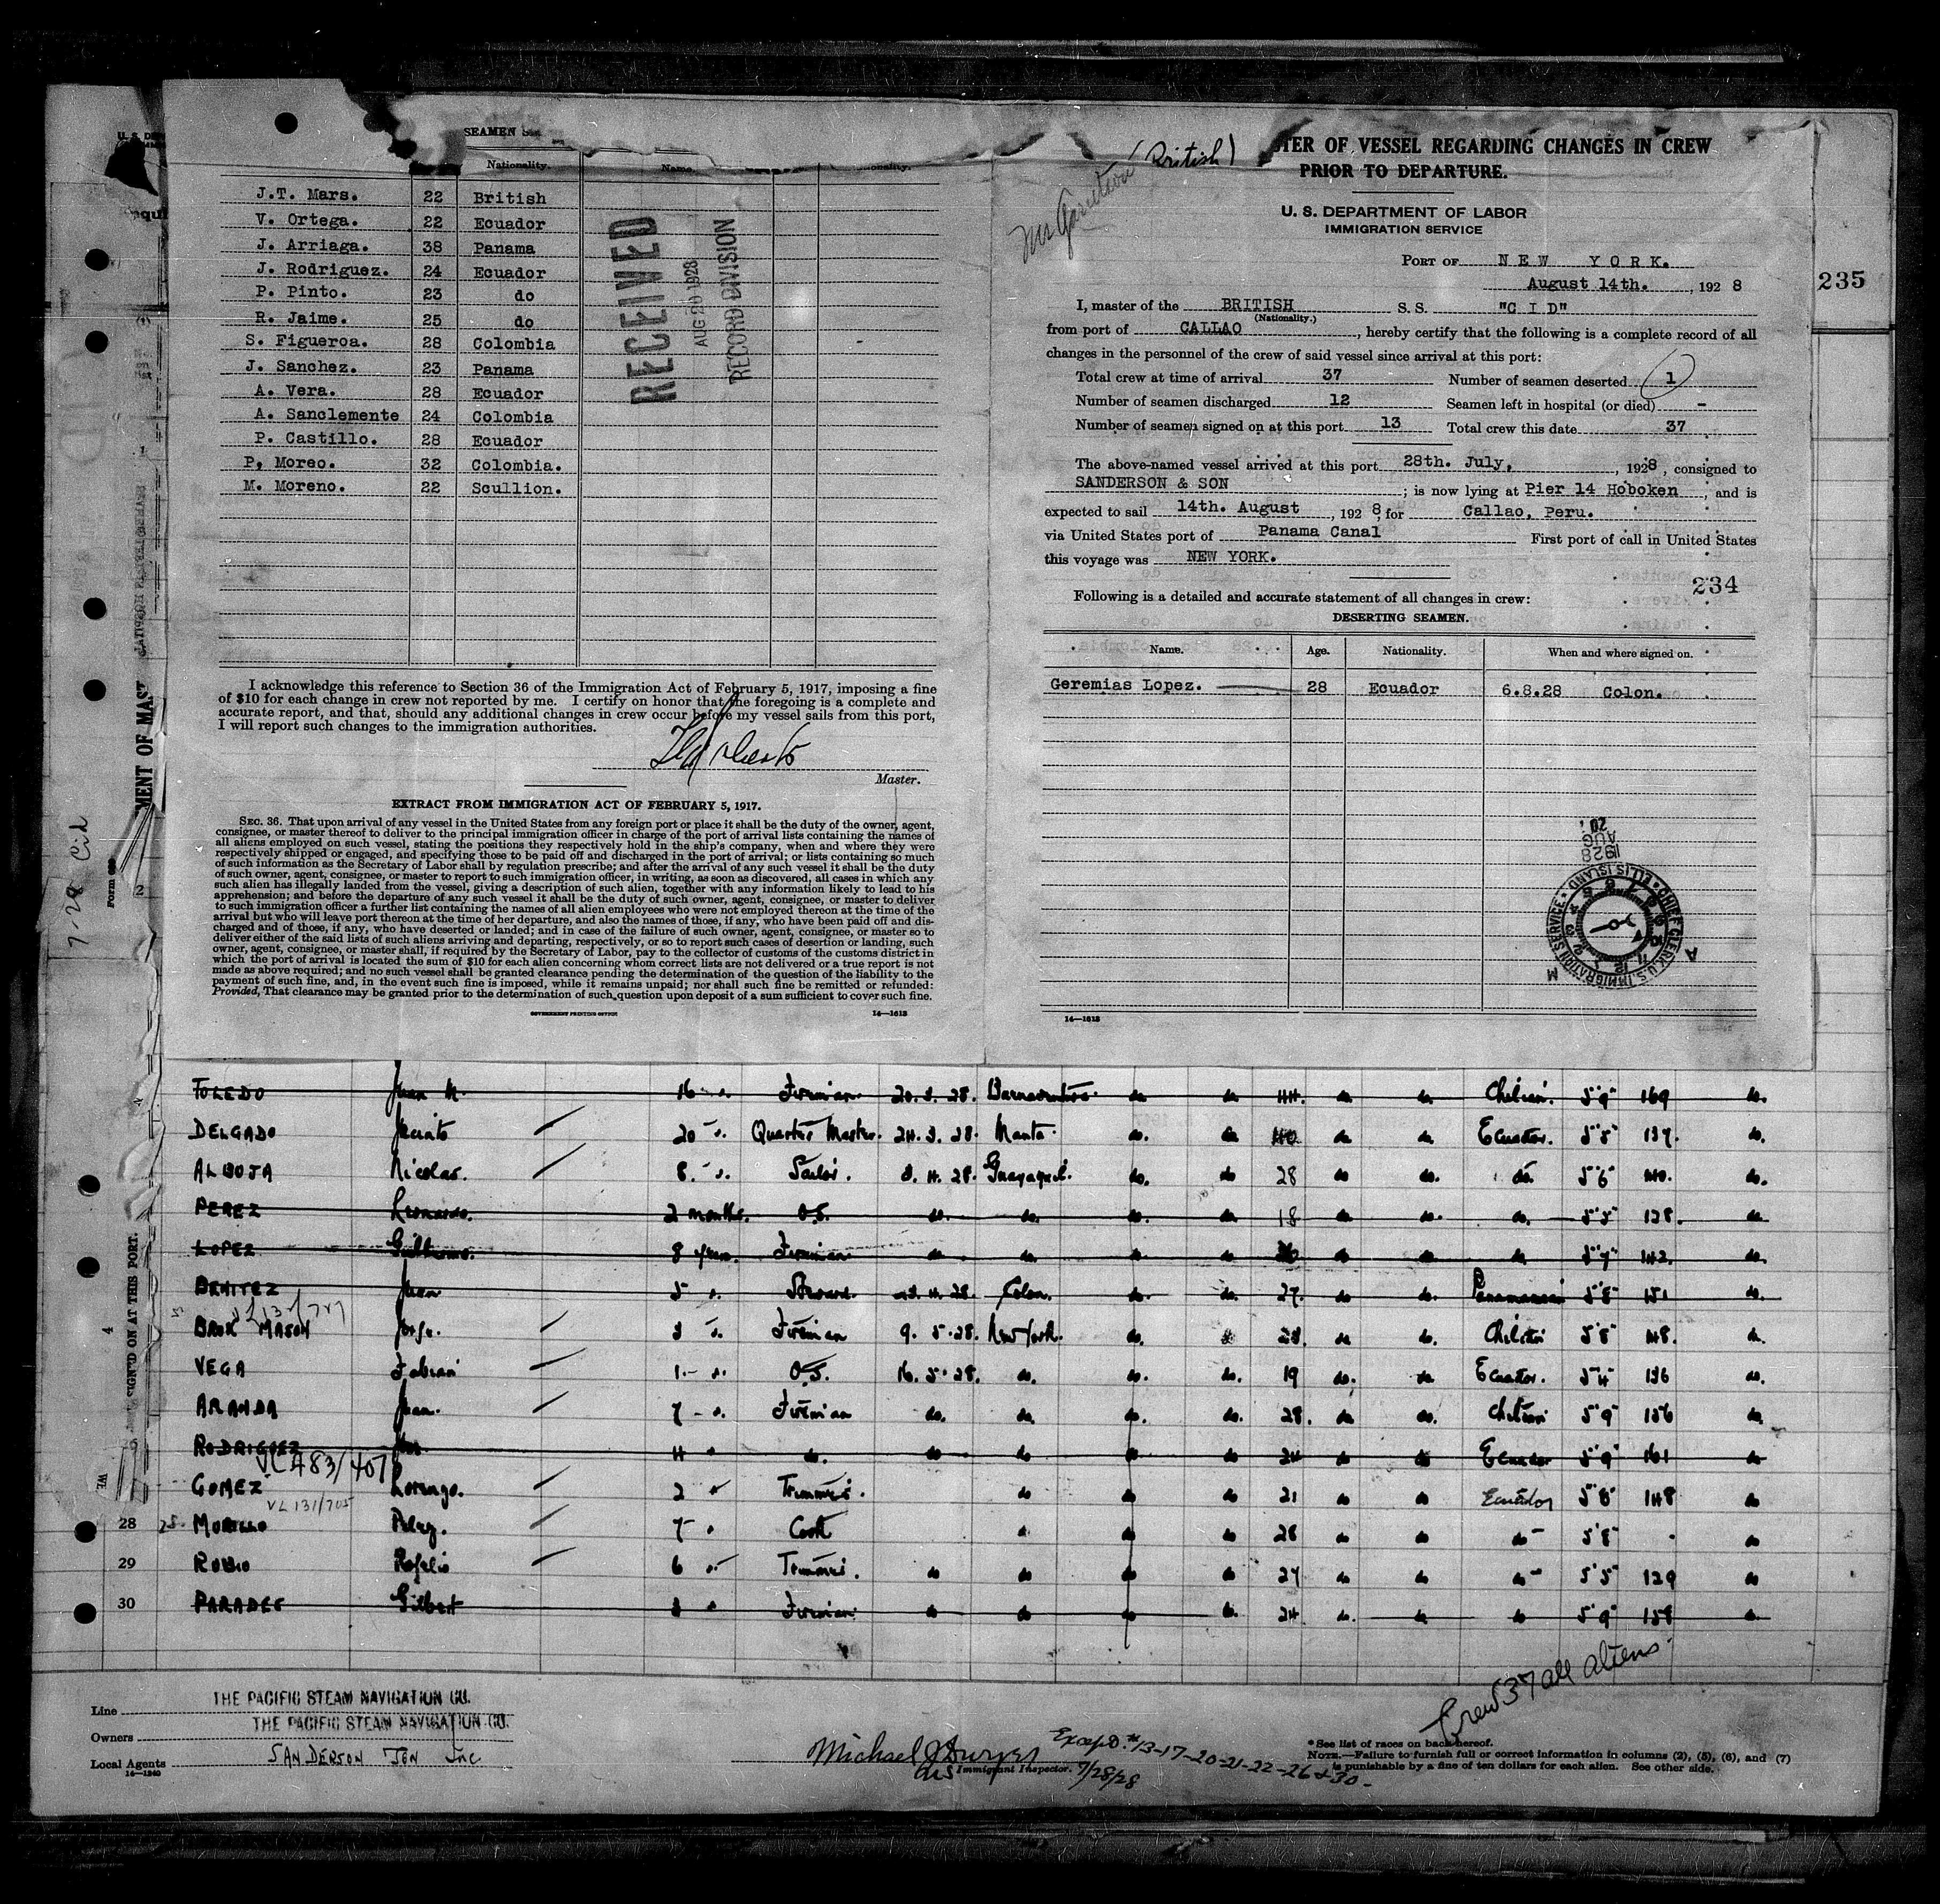 SEAMEN
Nationality.
Name.
J.T. Mars. 22 British
V. Ortega. 22 Ecuador
J. Arriaga. 38 Panama
J. Rodriguez. 24 Ecuador
P. Pinto. 23 do
R. Jaime. 25 do
S. Figueroa. 28 Colombia
J. Sanchez. 23 Panama
A. Vera. 28 Ecuador
A. Sanclemente 24 Colombia
P. Castillo. 28 Ecuador
P. Moreo. 32 Colombia.
M. Moreno. 22 Scullion.
RECEIVED
AUG 20 1928
RECORD DIVISION
I acknowledge this reference to Section 36 of the Immigration Act of February 5, 1917, imposing a fine
of $10 for each change in crew not reported by me. I certify on honor that the foregoing is a complete and
accurate report, and that, should any additional changes in crew occur before my vessel sails from this port,
I will report such changes to the immigration authorities.
Master.
EXTRACT FROM IMMIGRATION ACT OF FEBRUARY 5, 1917.
SEC. 36. That upon arrival of any vessel in the United States from any foreign port or place it shall be the duty of the owner, agent,
consignee, or master thereof to deliver to the principal immigration officer in charge of the port of arrival lists containing the names of
all aliens employed on such vessel, stating the positions they respectively hold in the ship's company, when and where they were
respectively shipped or engaged, and specifying those to be paid off and discharged in the port of arrival; or lists containing so much
of such information as the Secretary of Labor shall by regulation prescribe; and after the arrival of any such vessel it shall be the duty
of such owner, agent, consignee, or master to report to such immigration officer, in writing, as soon as discovered, all cases in which any
such alien has illegally landed from the vessel, giving a description of such alien, together with any information likely to lead to his
apprehension; and before the departure of any such vessel it shall be the duty of such owner, agent, consignee, or master to deliver
to such immigration officer a further list containing the names of all alien employees who were not employed thereon at the time of the
arrival but who will leave port thereon at the time of her departure, and also the names of those, if any, who have been paid off and dis-
charged and of those, if any, who have deserted or landed; and in case of the failure of such owner, agent, consignee, or master so to
deliver either of the said lists of such aliens arriving and departing, respectively, or so to report such cases of desertion or landing, such
owner, agent, consignee, or master shall, if required by the Secretary of Labor, pay to the collector of customs of the customs district in
which the port of arrival is located the sum of $10 for each alien concerning whom correct lists are not delivered or a true report is not
made as above required; and no such vessel shall be granted clearance pending the determination of the question of the liability to the
payment of such fine, and, in the event such fine is imposed, while it remains unpaid; nor shall such fine be remitted or refunded:
Provided, That clearance may be granted prior to the determination of such question upon deposit of a sum sufficient to cover such fine.
GOVERNMENT PRINTING OFFICE
14—1613
(British)
TER OF VESSEL REGARDING CHANGES IN CREW
PRIOR TO DEPARTURE.
U. S. DEPARTMENT OF LABOR
IMMIGRATION SERVICE
PORT OF NEW YORK.
August 14th. , 192 8
235
I, master of the BRITISH S. S. "CID"
(Nationality.)
from port of CALLAO , hereby certify that the following is a complete record of all
changes in the personnel of the crew of said vessel since arrival at this port:
Total crew at time of arrival 37 Number of seamen deserted 1
Number of seamen discharged 12 Seamen left in hospital (or died) -
Number of seamen signed on at this port 13 Total crew this date 37
The above-named vessel arrived at this port 28th. July, , 1928, consigned to
SANDERSON & SON ; is now lying at Pier 14 Hoboken , and is
expected to sail 14th. August , 192 8, for Callao, Peru.
via United States port of Panama Canal First port of call in United States
this voyage was NEW YORK.
234
Following is a detailed and accurate statement of all changes in crew:
DESERTING SEAMEN.
Name. Age. Nationality. When and where signed on.
Geremias Lopez. 28 Ecuador 6.8.28 Colon.
1928 AUG 20
CHIEF CLERK U.S. IMMIGRATION SERVICE ELLIS ISLAND
14—1613
MENT OF MAST
7-28 Cid
SIGNED ON AT THIS PORT.
TOLEDO Juan M. 16 Fireman 20.3.28. Buenaventura do do 44 do do Chilian. 5'9" 169 do.
DELGADO Jacinto 20 Quarter Master. 24.3.28. Manta do. do 40 do do Ecuador. 5'5" 137. do.
ALBUJA Nicolas. 8. Sailor. 3.4.28. Guayaquil. do. do 28 do do. do. 5'6" 140. do.
PEREZ Leonardo. 2 months. O.S. do. do. do. do 18 do do. do. 5'5" 128. do
LOPEZ Guillermo. 8 years. Fireman do do. do do do do do 5'7" 142. do.
BENITEZ Juan 5 Steward 23.4.28. Colon. do. do. 27. do do. Panamanian 5'8" 151 do.
MASON Jorje. 3 Fireman 9.5.28. New York. do. do 28. do do. Chilian 5'8" 148. do.
VEGA Fabian 1 O.S. 16.5.28. do. do. do. 19 do. do Ecuador. 5'4" 136 do.
ARANDA Juan. 7 Fireman do. do. do. do. 28. do do. Chilian 5'9" 156 do.
RODRIGUEZ 4 do. do do do do 24 do do Ecuador 5'9" 161 do
GOMEZ Lorenzo. 2 Trimmer. do do do 21 do do Ecuador 5'8" 148 do
VL 131/705
28 MURILLO 7 Cook do do do 28 do do do 5'8" do
29 RUBIO Rogelio 6 Trimmer. do do do do 27 do do do 5'5" 129 do
30 PAREDES Gilbert 3 Fireman do do do do. 24 do. do do 5'9" 158 do
Crew 37 all aliens.
Line THE PACIFIC STEAM NAVIGATION CO.
Owners THE PACIFIC STEAM NAVIGATION CO.
Local Agents SANDERSON SON Inc
14—1240
Michael
Immigrant Inspector. 7/28/28
Except #13-17-20-21-22-26 & 30-
*See list of races on back hereof.
NOTE.—Failure to furnish full or correct information in columns (2), (5), (6), and (7)
is punishable by a fine of ten dollars for each alien. See other side.